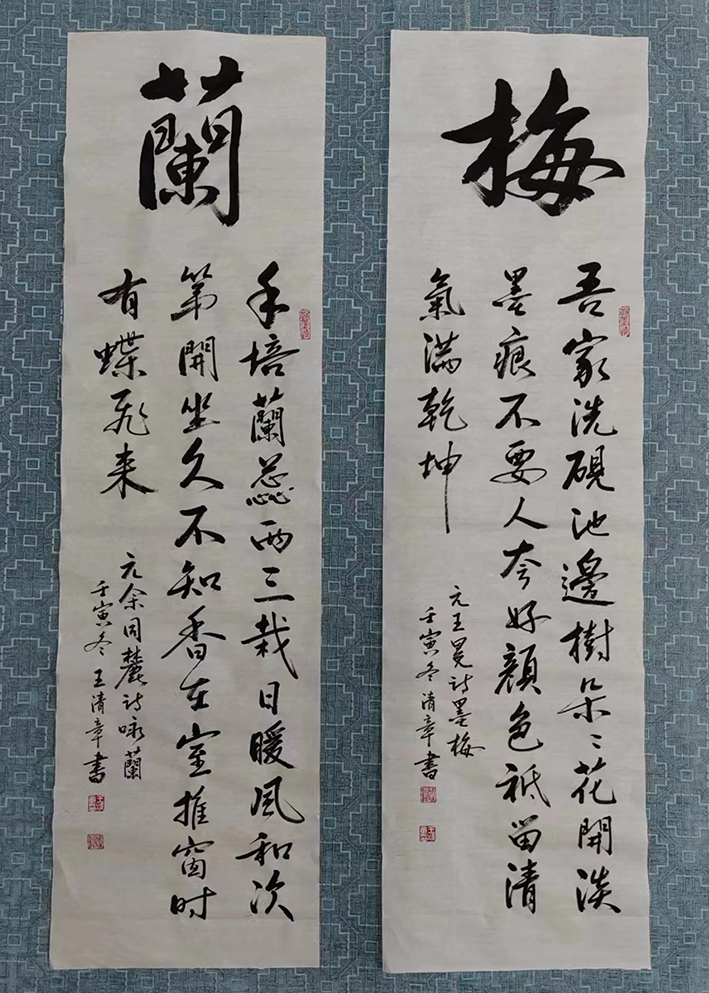 梅
吾家洗硯池邊樹朵〻花開淡
墨痕不要人夸好顏色祇留清
氣滿乾坤
元王冕詩墨梅
壬寅冬清章書
蘭
手培蘭蕊兩三栽日暖風和次
第開坐久不知香在室推窗时
有蝶飛来
元余同麓詩咏蘭
壬寅冬王清章書